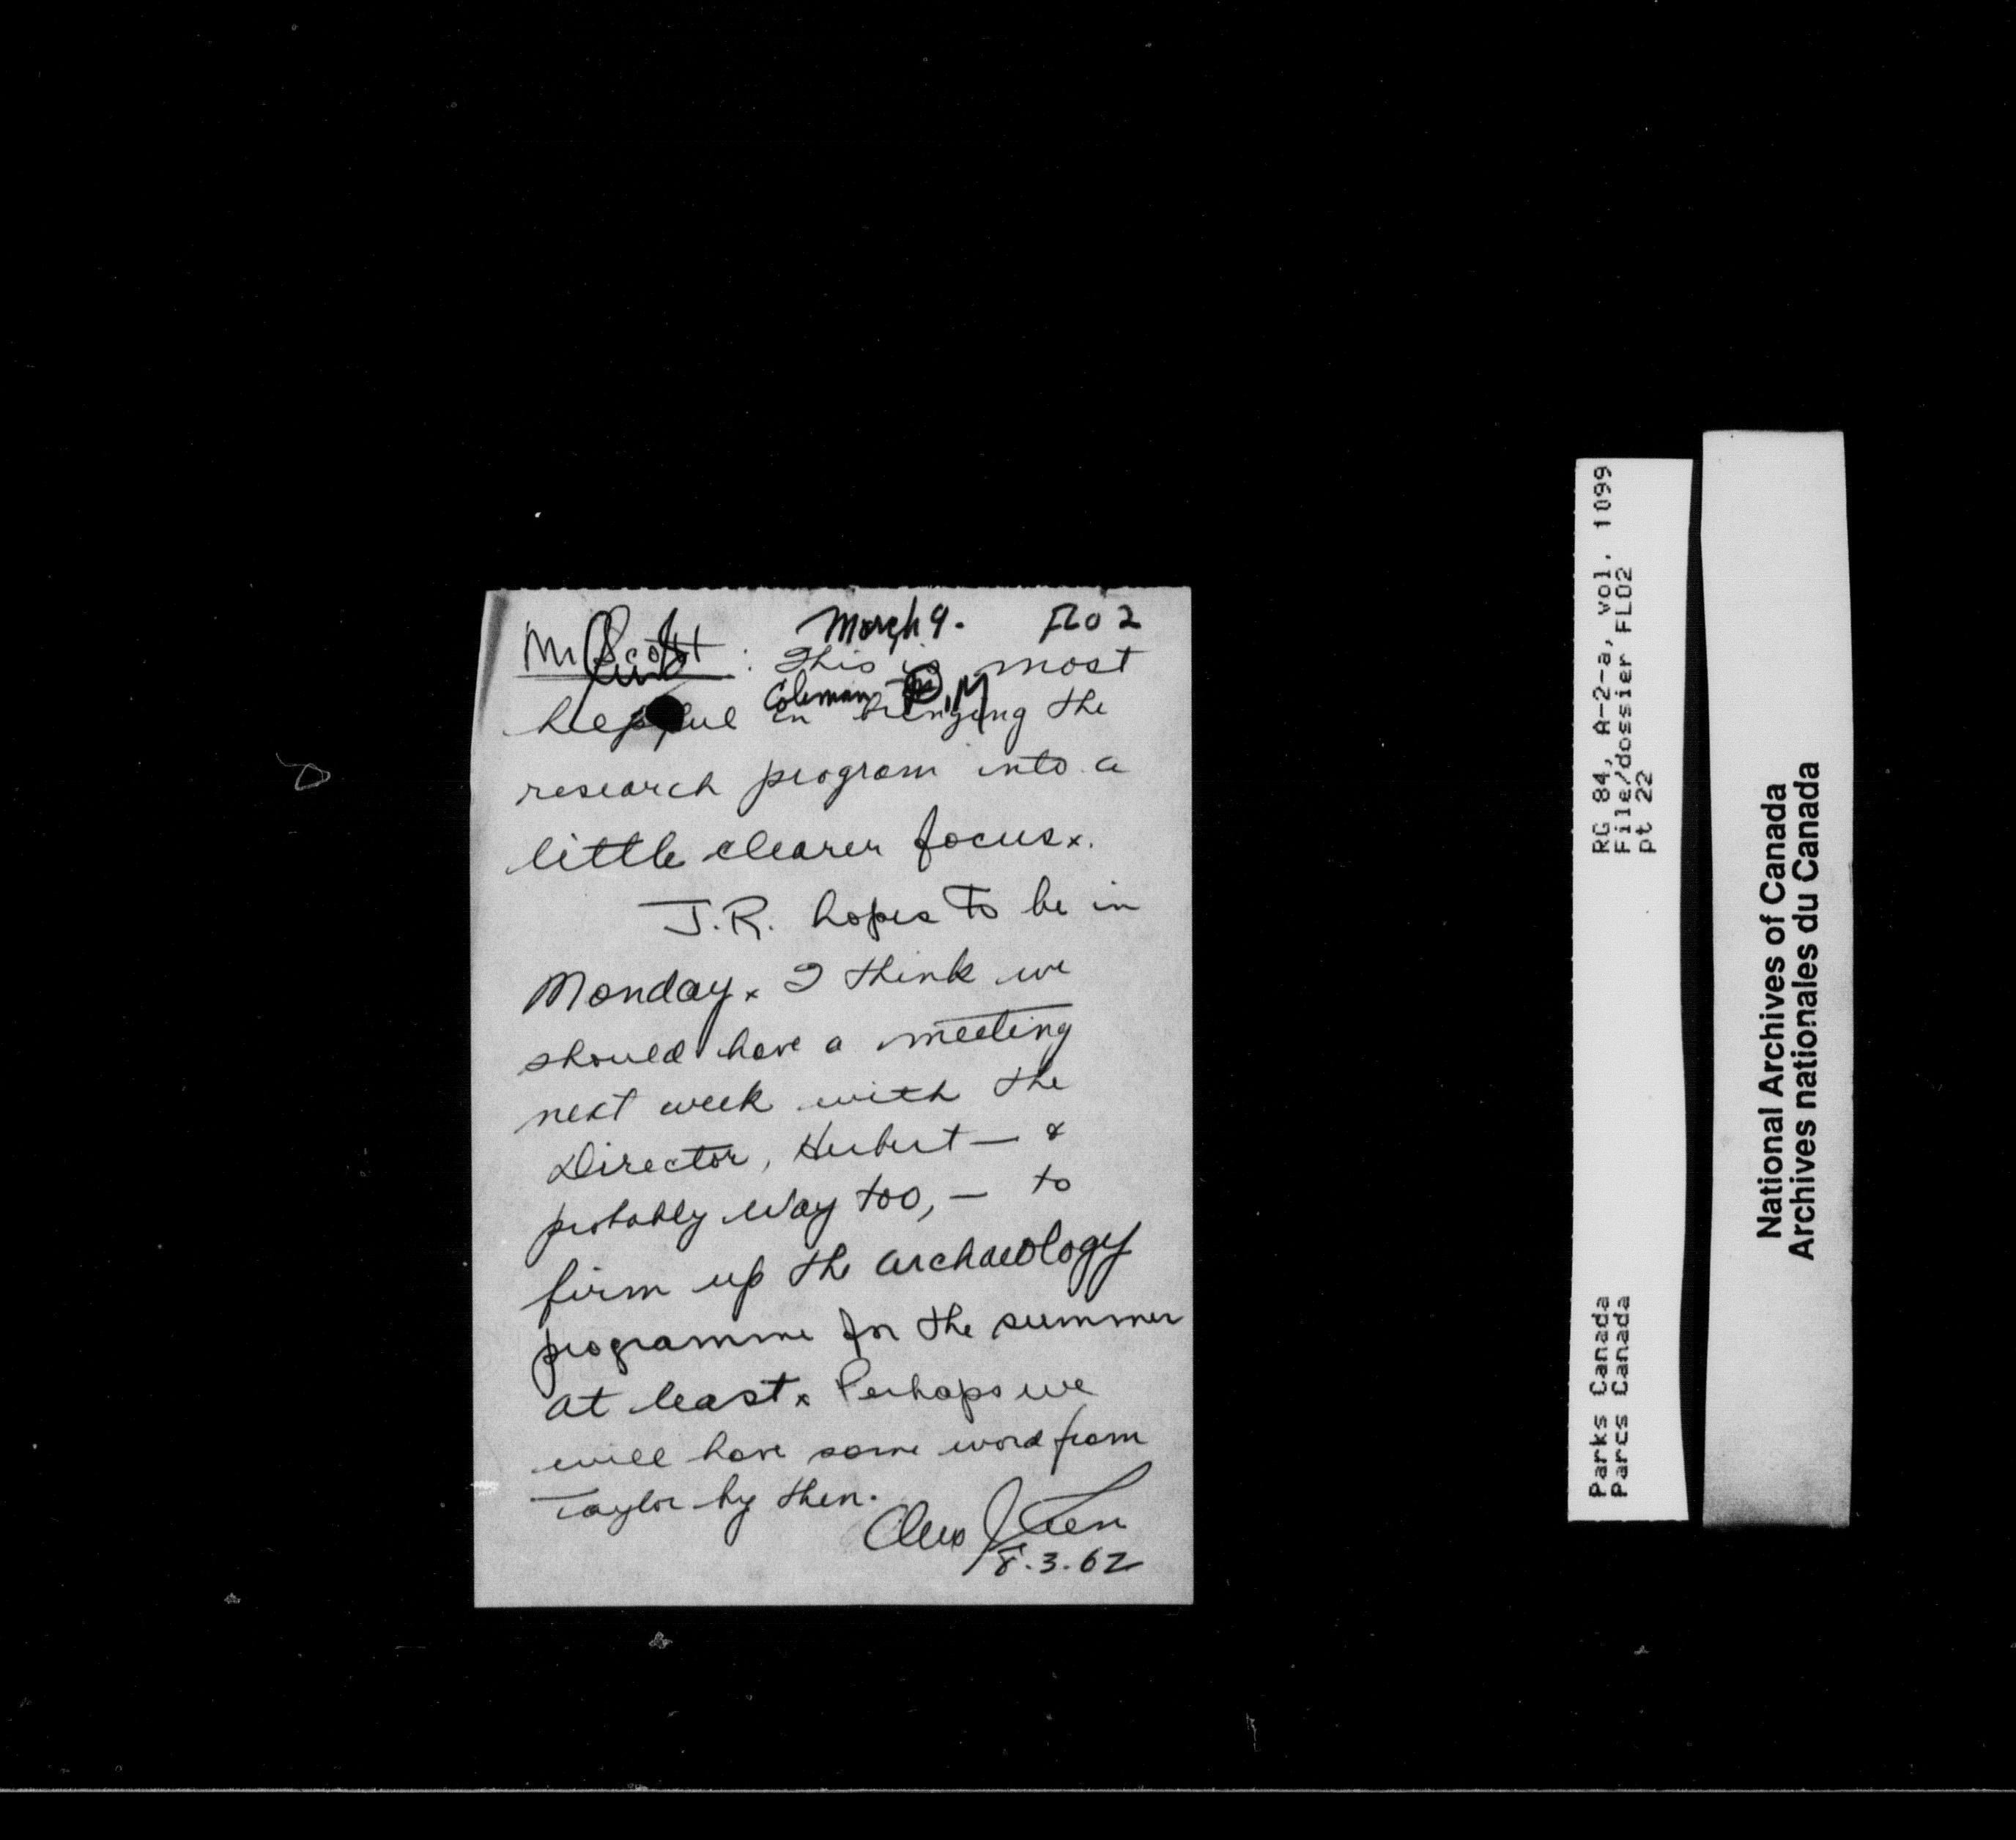 March 9. FLO 2
Mr Scott : This is most
Coleman
helpful in bringing the
research program into a
little clearer focus x.
J.R. hopes to be in
Monday x I think we
should have a meeting
next week with the
Director, Herbert — &
probably Way too, — to
firm up the archaeology
programme for the summer
at least x Perhaps we
will have some word from
Taylor by then.
8.3.62
RG 84, A-2-a, vol. 1099
File/dossier FLO2
pt 22
Parks Canada
Parcs Canada
National Archives of Canada
Archives nationales du Canada